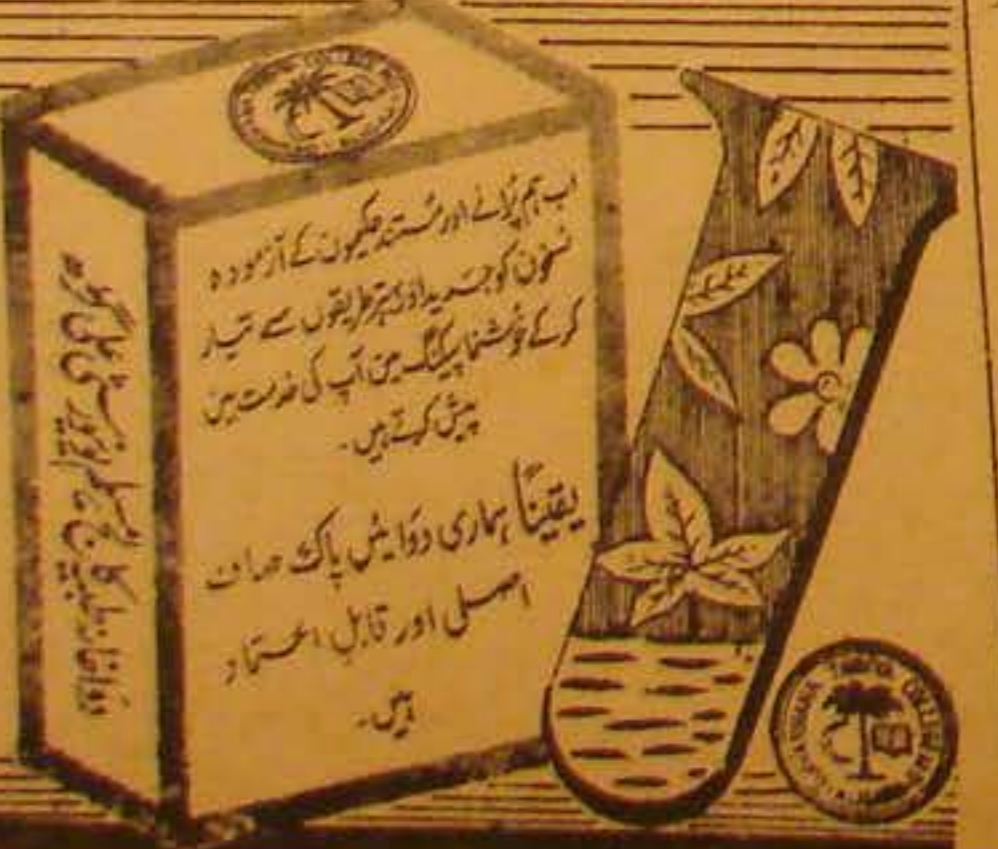 اب ہم پُرانے اور مُستند حکیموں کے آزمودہ
نسخوں کو جدید اور بہتر طریقوں سے تیار
کرکے خوشنما پیکنگ میں آپ کی خدمت میں
پیش کرتے ہیں۔
یقیناً ہماری دوائیں پاک صاف
اصلی اور قابلِ اعتماد
ہیں۔
TIBBIYA COLLEGE